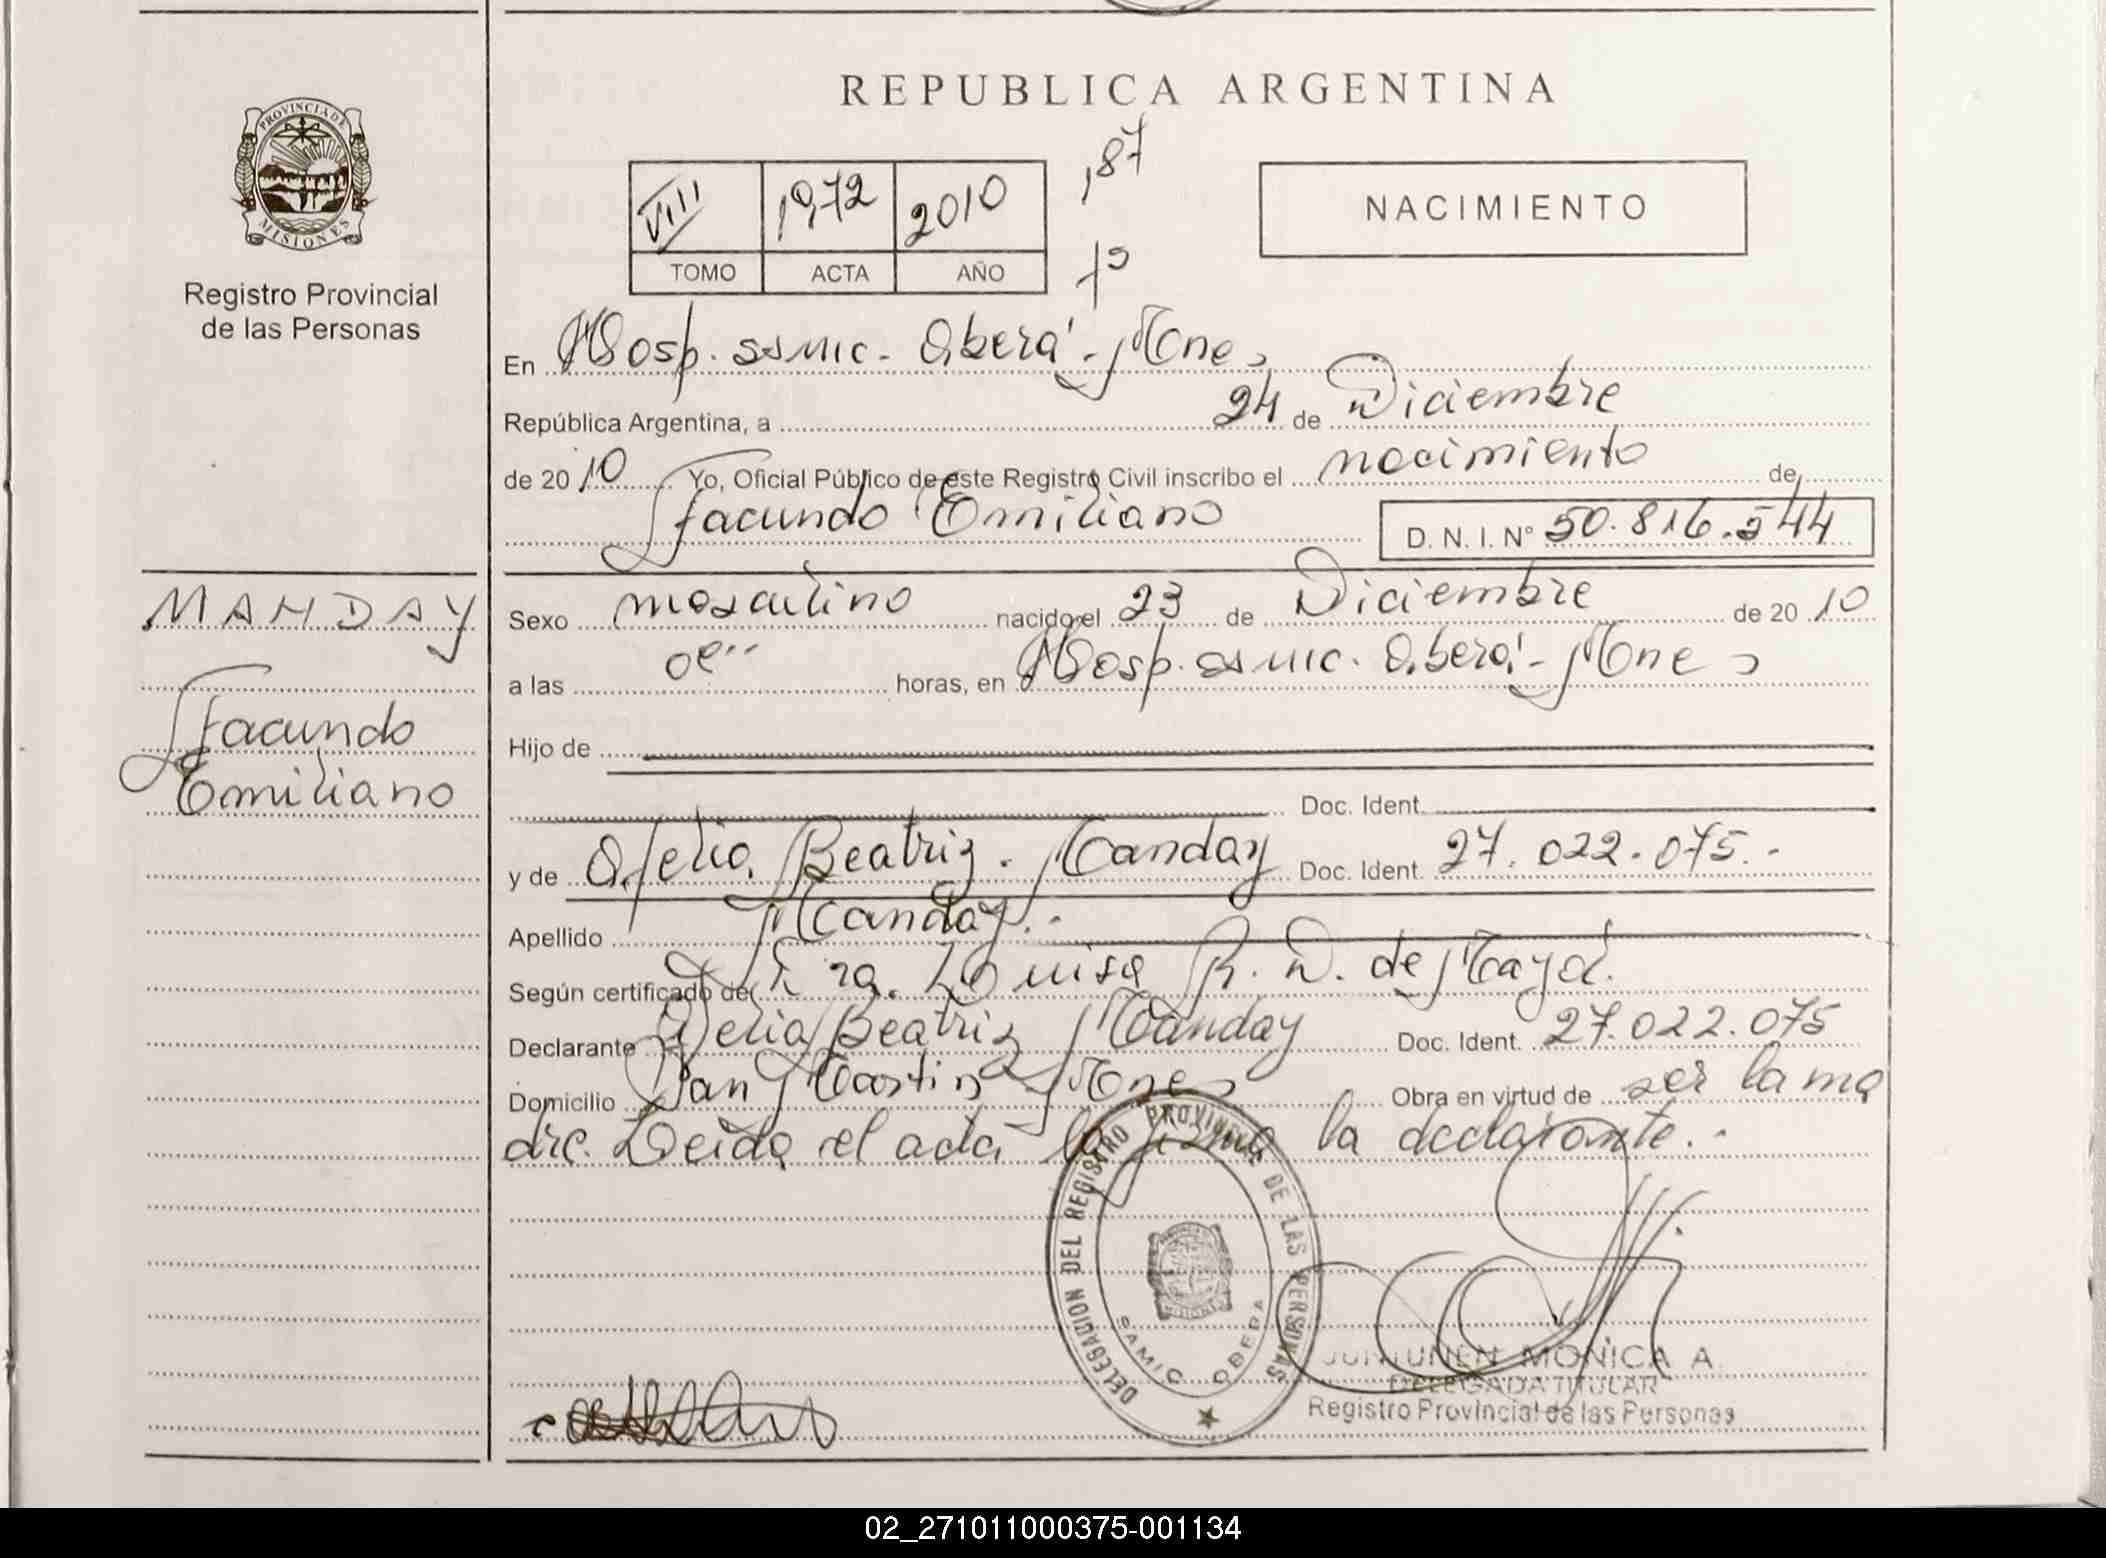 REPUBLICA ARGENTINA
PROVINCIA DE
MISIONES
Registro Provincial
de las Personas
VIII 1972 2010
TOMO ACTA AÑO
187
fº
NACIMIENTO
En Hosp. ssmic. Oberá - Mnes
República Argentina, a 24 de Diciembre
de 2010 Yo, Oficial Público de este Registro Civil inscribo el nacimiento de
Facundo Emiliano D. N. I. Nº 50.816.544
MANDAY
Facundo
Emiliano
Sexo masculino nacido el 23 de Diciembre de 2010
a las horas, en Hosp. ssmic. Oberá - Mnes
Hijo de
Doc. Ident.
y de Ofelia Beatriz Manday Doc. Ident. 27.022.075.-
Apellido Manday.-
Según certificado de Dra. Luisa R. D. de Mayol.
Declarante Ofelia Beatriz Manday Doc. Ident. 27.022.075
Domicilio San Martin Mnes Obra en virtud de ser la ma
dre. Leida el acta la firma la declarante.-
DELEGACION DEL REGISTRO PROVINCIAL DE LAS PERSONAS
SAMIC OBERA
MONICA A.
DELEGADA TITULAR
Registro Provincial de las Personas
02_271011000375-001134